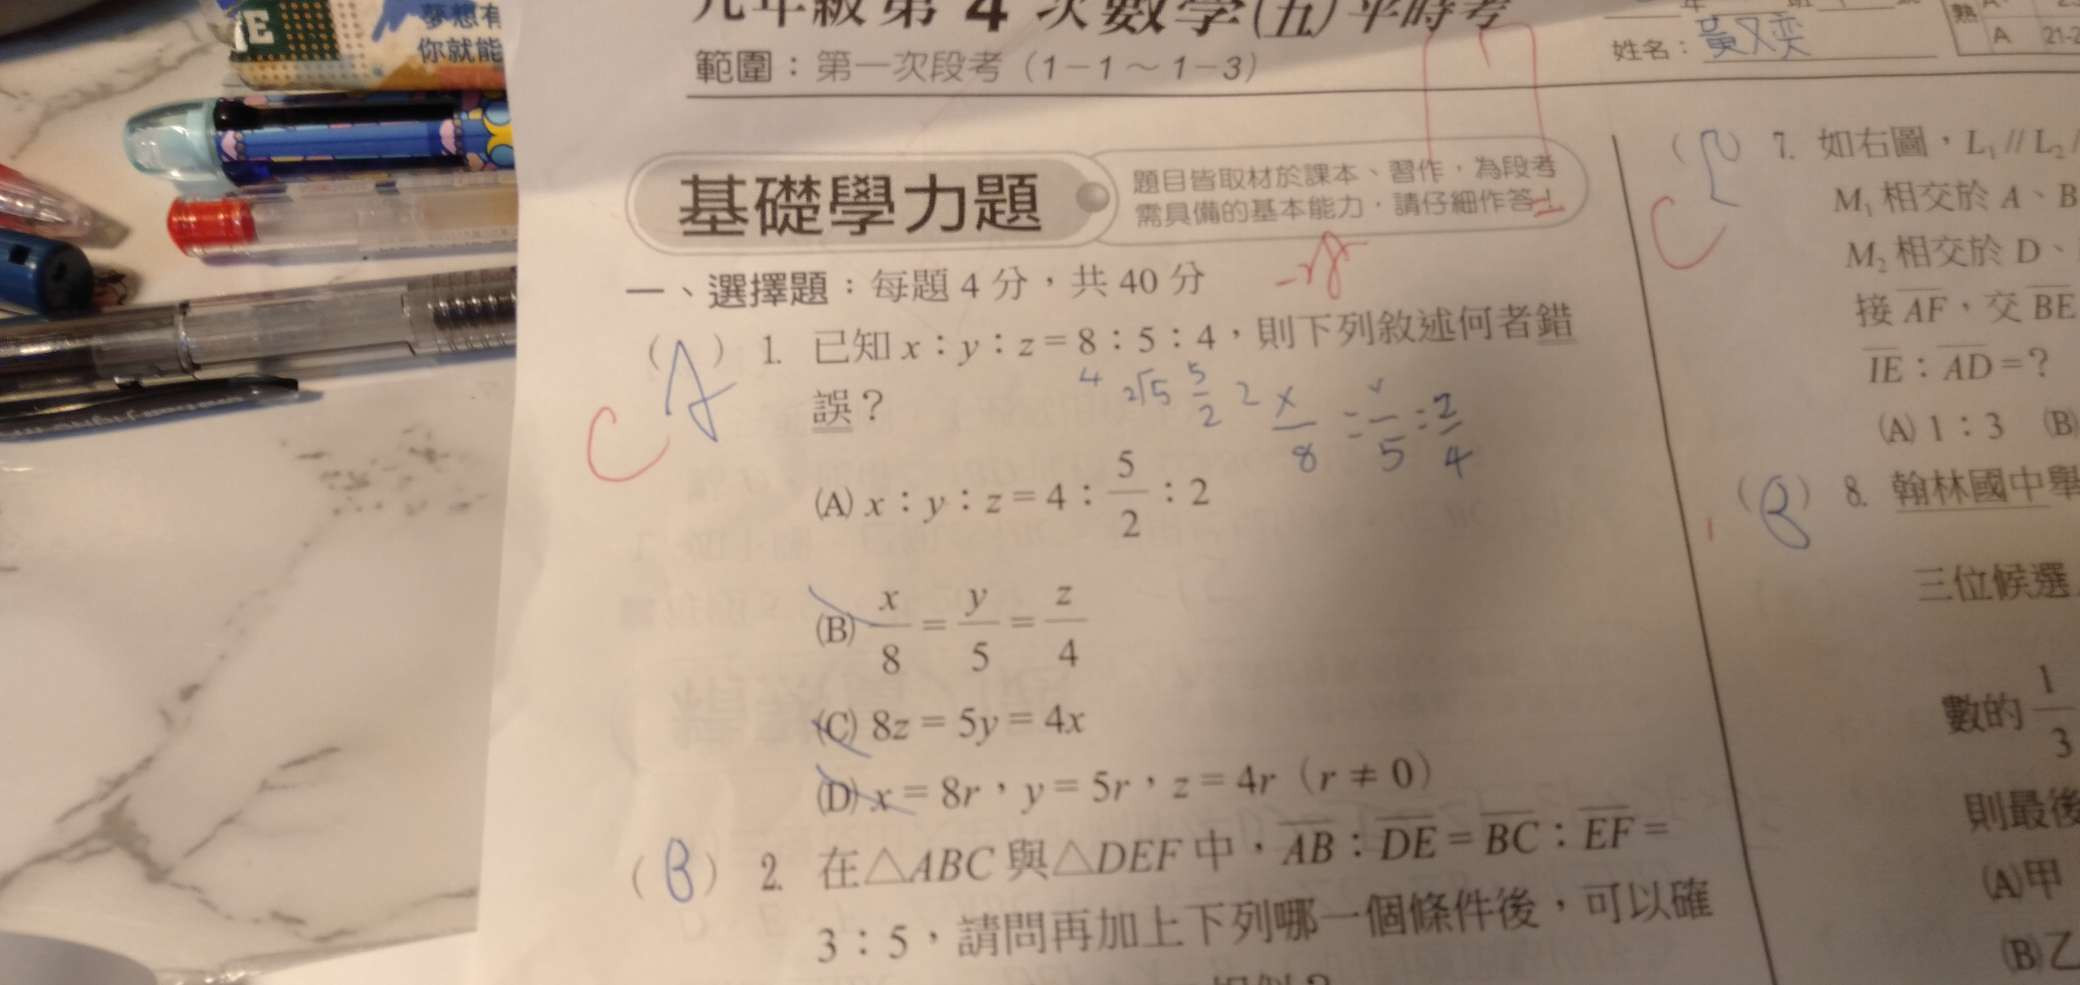 夢想有
你就能
九年級 第 4 次數學(五)平時考
範圍：第一次段考（1－1～1－3）
姓名：黃又奕
A
基礎學力題
題目皆取材於課本、習作，為段考
需具備的基本能力，請仔細作答！
一、選擇題：每題 4 分，共 40 分
( A ) 1. 已知 x：y：z＝8：5：4，則下列敘述何者錯
誤？
C
4 2√5 5/2 2 x/8 = y/5 = z/4
(A) x：y：z＝4：5/2：2
(B) x/8＝y/5＝z/4
(C) 8z＝5y＝4x
(D) x＝8r，y＝5r，z＝4r（r≠0）
( B ) 2. 在△ABC 與△DEF 中，AB：DE＝BC：EF＝
3：5，請問再加上下列哪一個條件後，可以確
7. 如右圖，L₁∥L₂
C
M₁ 相交於 A、B
M₂ 相交於 D、
接 AF，交 BE
IE：AD＝？
(A) 1：3 (B)
( B ) 8. 翰林國中舉
三位候選
數的 1/3
則最後
(A)甲
(B)乙